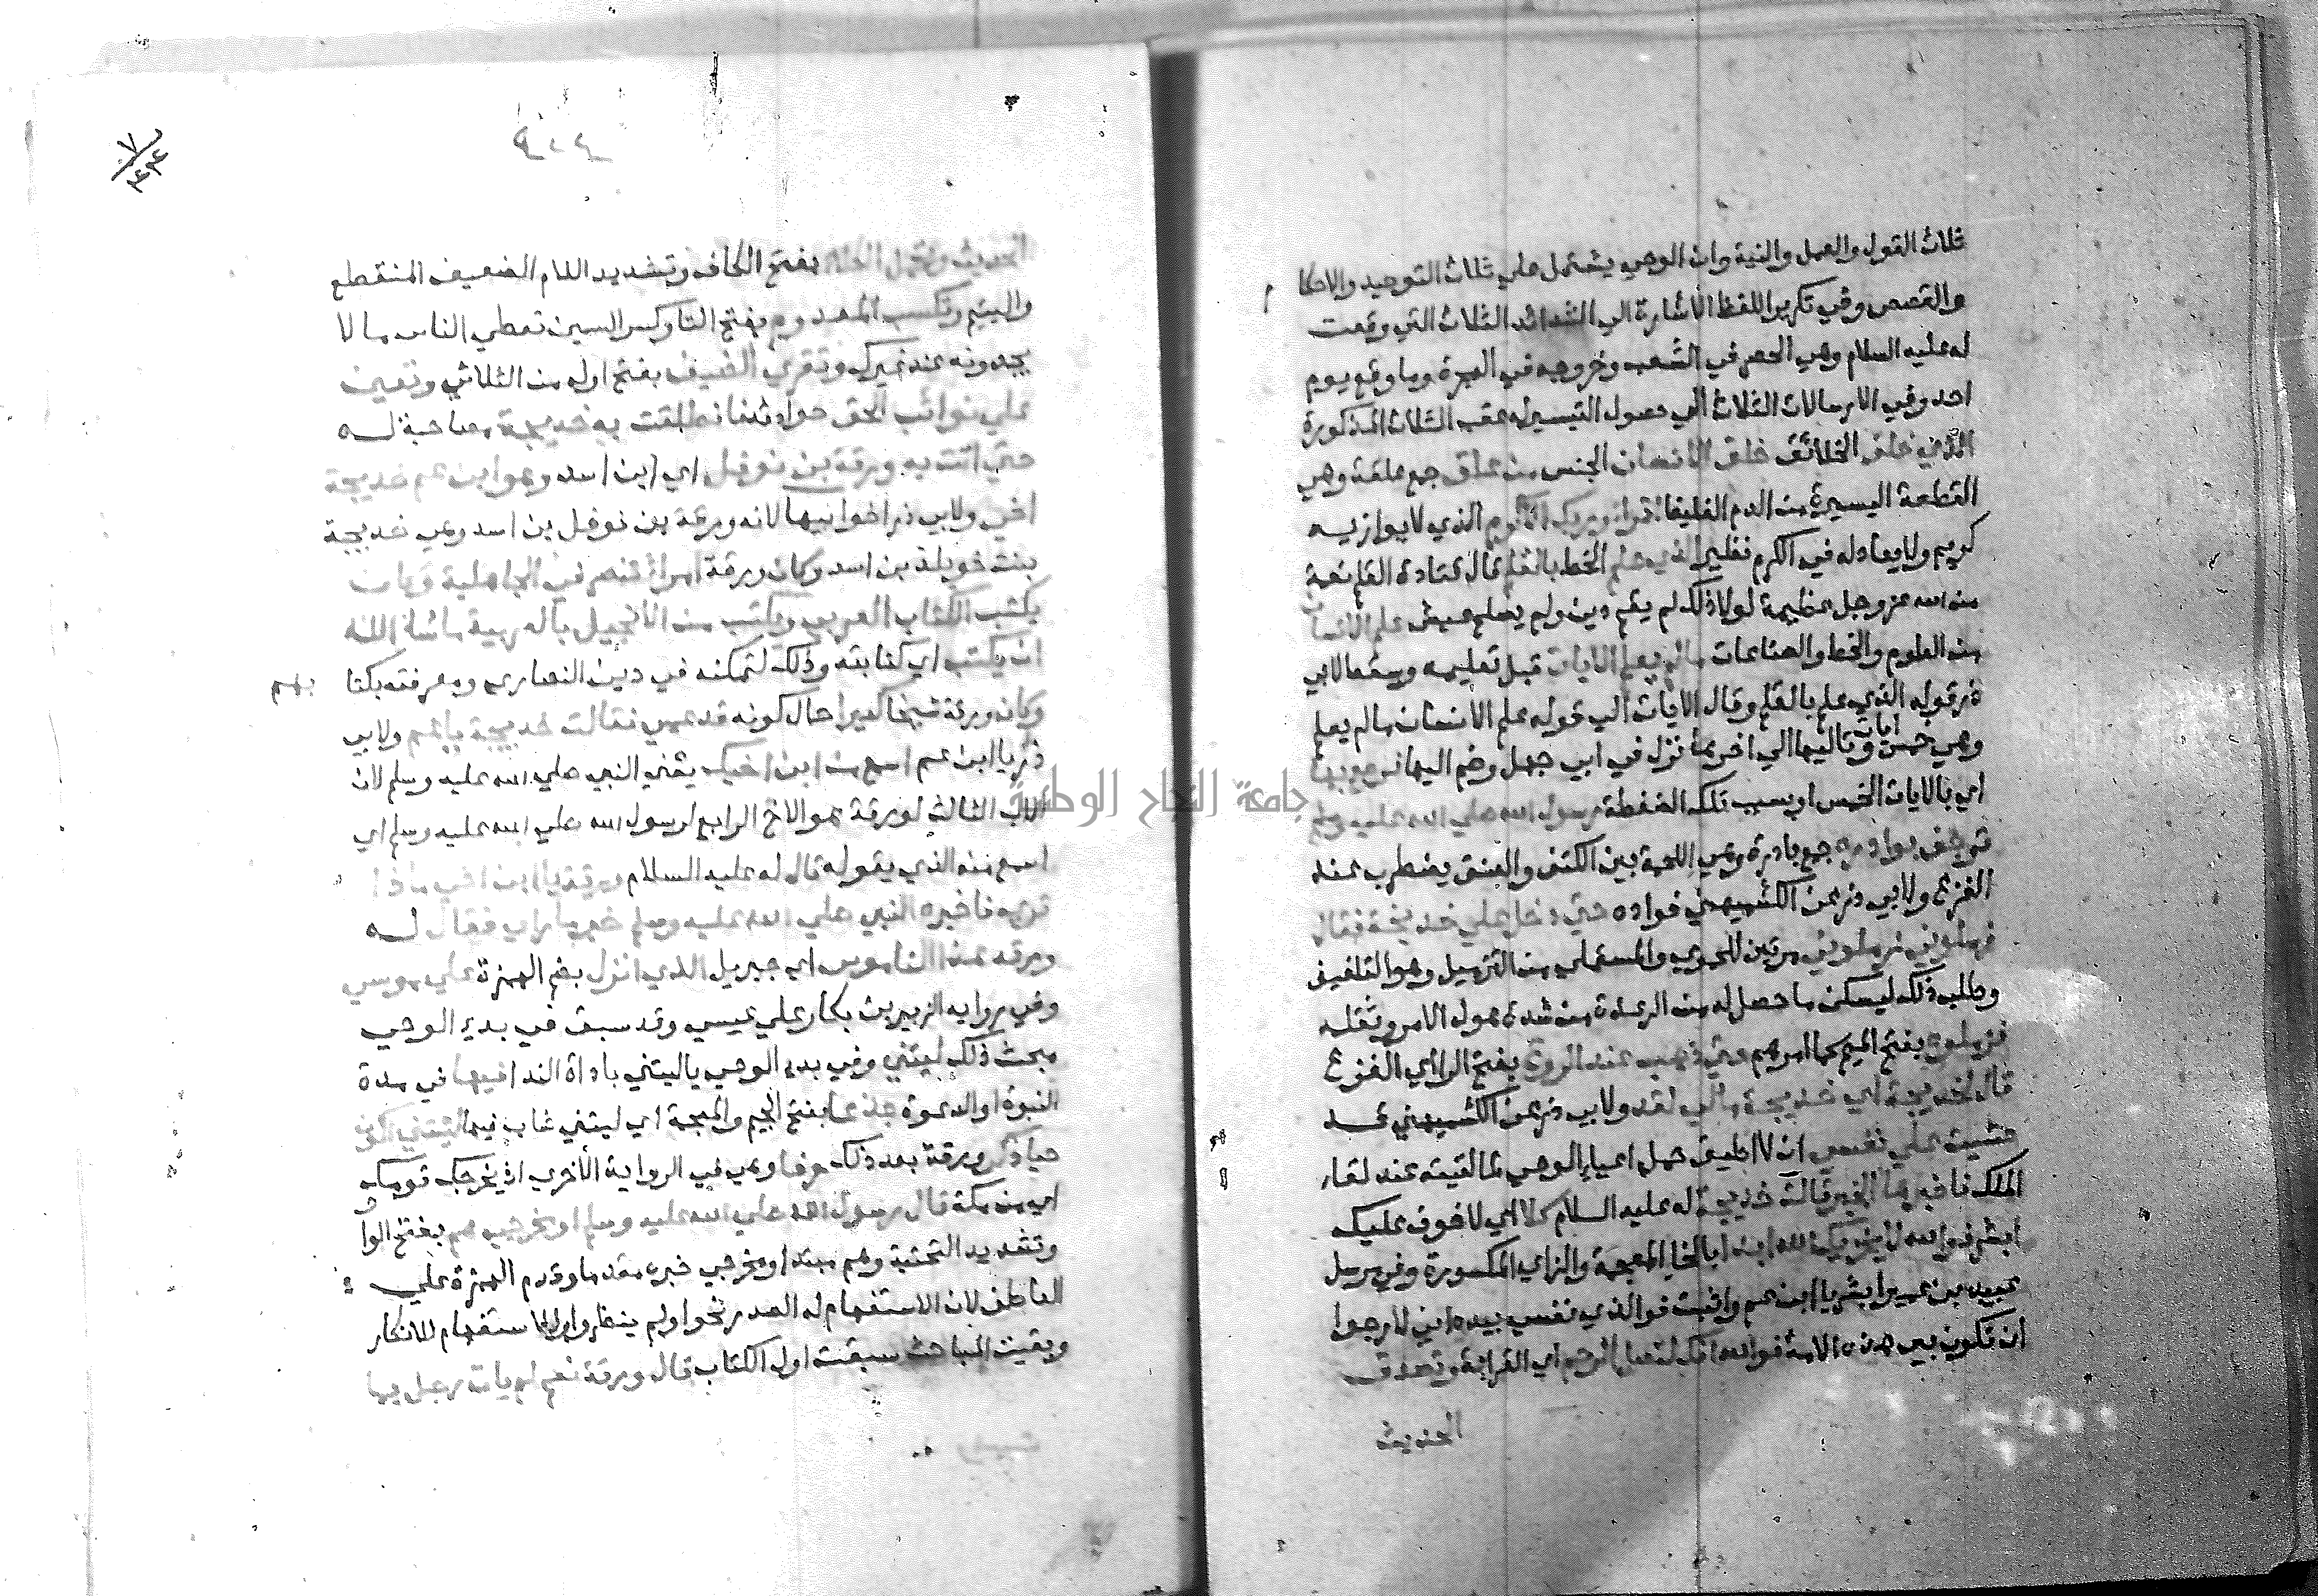 ثلاث القول والعمل والنية وان الوحي يشتمل علي ثلاث التوحيد والاحكا م
والقصص وفي تكرير اللفظ الاشارة الي الشدائد الثلاث التي وقعت
له عليه السلام وهي الحصر في الشعب وخروجه في الهجرة وما وقع يوم
احد وفي الارسالات الثلاث الي حصول التيسير له عقب الثلاث المذكورة
الذي خلق الخلائق خلق الانسان الجنس من علق جمع علقة وهي
القطعة اليسيرة من الدم الغليظ اقرا وربك الاكرم الذي لا يوازيه
كريم ولا يعادله في الكرم نظير الذي علم الخط بالقلم قال قتادة القلم نعمة
من الله عز وجل عظيمة لولا ذلك لم يقم دين ولم يصلح عيش علم الانسان
من العلوم والخط والصناعات ما لم يعلم الايات قبل تعليمه وسقط لابي
ذر قوله الذي علم بالقلم وقال الايات الي قوله علم الانسان ما لم يعلم
ايات
وهي خمس وتاليها الي اخرها نزل في ابي جهل وضم اليها فرجع بها
اي بالايات الخمس او بسبب تلك الضغطة رسول الله صلي الله عليه وسلم
ترجف بوادره جمع بادرة وهي اللحمة بين الكتف والعنق يضطرب عند
الفزع ولابي ذر عن الكشميهني فواده حتي دخل علي خديجة فقال
زملوني زملوني مرتين للحموي والمستملي من التزميل وهو التلفيف
وطلب ذلك ليسكن ما حصل له من الرعدة من شدة هول الامر وثقله
فزملوه بفتح الميم كما امرهم حتي ذهب عنه الروع بفتح الرا اي الفزع
قال لخديجة اي خديجة مالي لقد ولابي ذر عن الكشميهني قد
خشيت علي نفسي ان لا اطيق حمل اعباء الوحي لما لقيته عند لقاء
الملك فاخبرها الخبر قالت خديجة له عليه السلام كلا اي لا خوف عليك
ابشر فوالله لا يخزيك الله ابدا بالخا المعجمة والزاي المكسورة وفي مرسل
عبيد بن عمير ابشر يا ابن عم واثبت فوالذي نفسي بيده اني لارجوا
ان تكون نبي هذه الامة فوالله انك لتصل الرحم اي القرابة وتصدق
الحديث
٤٠٤
الحديث وتحمل الكل بفتح الكاف وتشديد اللام الضعيف المنقطع
واليتيم وتكسب المعدوم بفتح التا وكسر السين تعطي الناس ما لا
يجدونه عند غيرك وتقري الضيف بفتح اوله من الثلاثي وتعين
علي نوائب الحق حوادثه فانطلقت به خديجة مصاحبة له
حتي اتت به ورقة بن نوفل اي ابن اسد وهو ابن عم خديجة
اخي ولابي ذر اخو ابيها لانه ورقة بن نوفل بن اسد وهي خديجة
بنت خويلد بن اسد وكان ورقة امرا تنصر في الجاهلية وكان
يكتب الكتاب العربي ويكتب من الانجيل بالعربية ما شاء الله
ان يكتب اي كتابته وذلك لتمكنه في دين النصاري ومعرفته بكتا بهم
وكان ورقة شيخا كبيرا حال كونه قد عمي فقالت خديجة يا عم ولابي
ذر يا ابن عم اسمع من ابن اخيك يعني النبي صلي الله عليه وسلم لان
الاب الثالث لورقة هو الاخ الرابع لرسول الله صلي الله عليه وسلم اي
اسمع منه الذي يقوله قال له عليه السلام ورقة يا ابن اخي ماذا
تري فاخبره النبي صلي الله عليه وسلم خبر ما راي فقال له
ورقة هذا الناموس اي جبريل الذي انزل بضم الهمزة علي موسي
وفي رواية الزبير بن بكار علي عيسي وقد سبق في بدء الوحي
مبحث ذلك ليتني وفي بدء الوحي ياليتني باداة الندا فيها في مدة
النبوة او الدعوة جذعا بفتح الجيم والمعجمة اي ليتني شاب فيها ليتني اكون
حيا ذكر ورقة بعد ذلك حرفا وهي في الرواية الاخري اذ يخرجك قومك
اي من مكة قال رسول الله صلي الله عليه وسلم او مخرجي هم بفتح الوا و
وتشديد التحتية وهم مبتدا ومخرجي خبره مقدما وقدم الهمزة علي
العاطف لان الاستفهام له الصدر نحو اولم ينظروا والاستفهام للانكار
وبقيت المباحث سبقت اول الكتاب قال ورقة نعم لم يات رجل بما
جامعة النجاح الوطنية